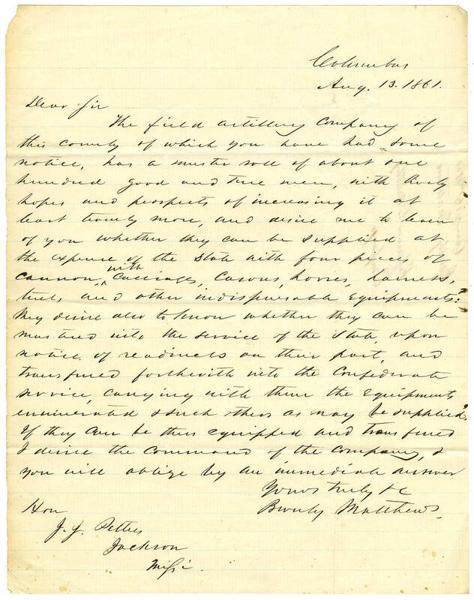 Columbus
Aug. 13. 1861.
Dear Sir
The field artillery Company of
this county of which you have had some
notice, has a muster roll of about one
hundred good and true men, with
hopes and prospects of increasing it at
least twenty more, and desire me to learn
of you whether they can be supplied at
the expense of the State with four pieces of
cannon, with carriages, horses, harness,
and other indispensable equipments.
They desire also to know whether they can be
mustered into the service of the State, upon
notice of readiness on their part, and
transfered forthwith into the Confederate
service, carrying with them the equipments
enumerated & such others as may be supplied.
If they can be thus equipped and transfered
I desire the command of the company, &
you will oblige by an immediate answer
Yours truly &c
Matthews.
Hon
J. J. Pettus
Jackson
Missi.